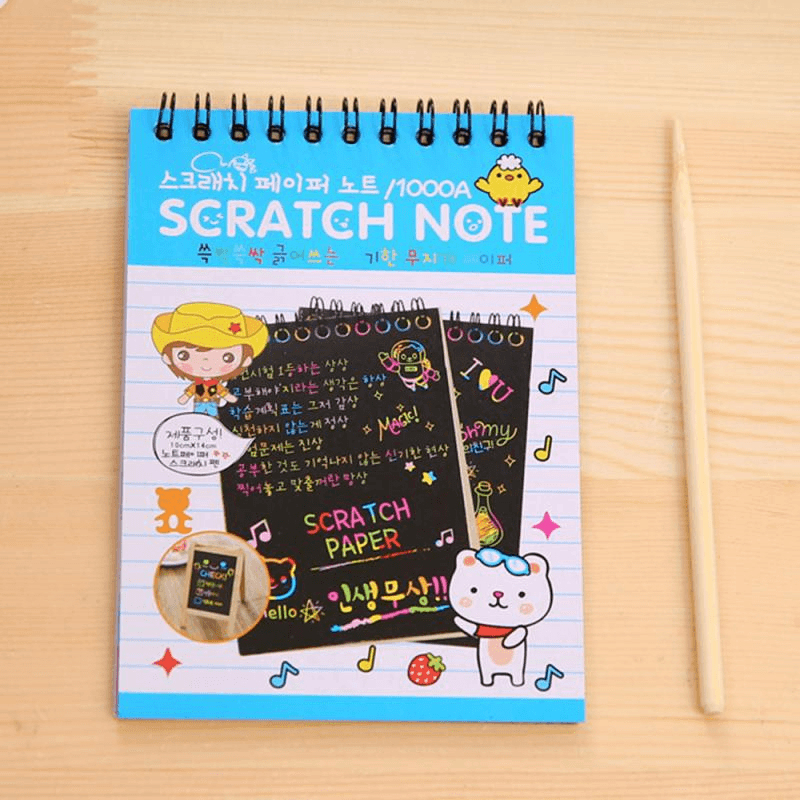 스크래치 페이퍼 노트 /1000A
SCRATCH NOTE
쓱 쓱싹 긁어쓰는 기한 무지 이퍼
시험 1등하는 상상
부해야지라는 생각은 항상
학습계획표는 그저 감상
실천하지 않는게 정상
험문제는 진상
공부한것도 기억나지 않는 신기한 현상
찍어놓고 맞출꺼란 망상
MAGIC!
SCRATCH
PAPER
인생무상!!
ello
I U
oh my
의친구!
제품구성!
10cmX14cm
노트페이퍼
스크래치 펜
CHECK!